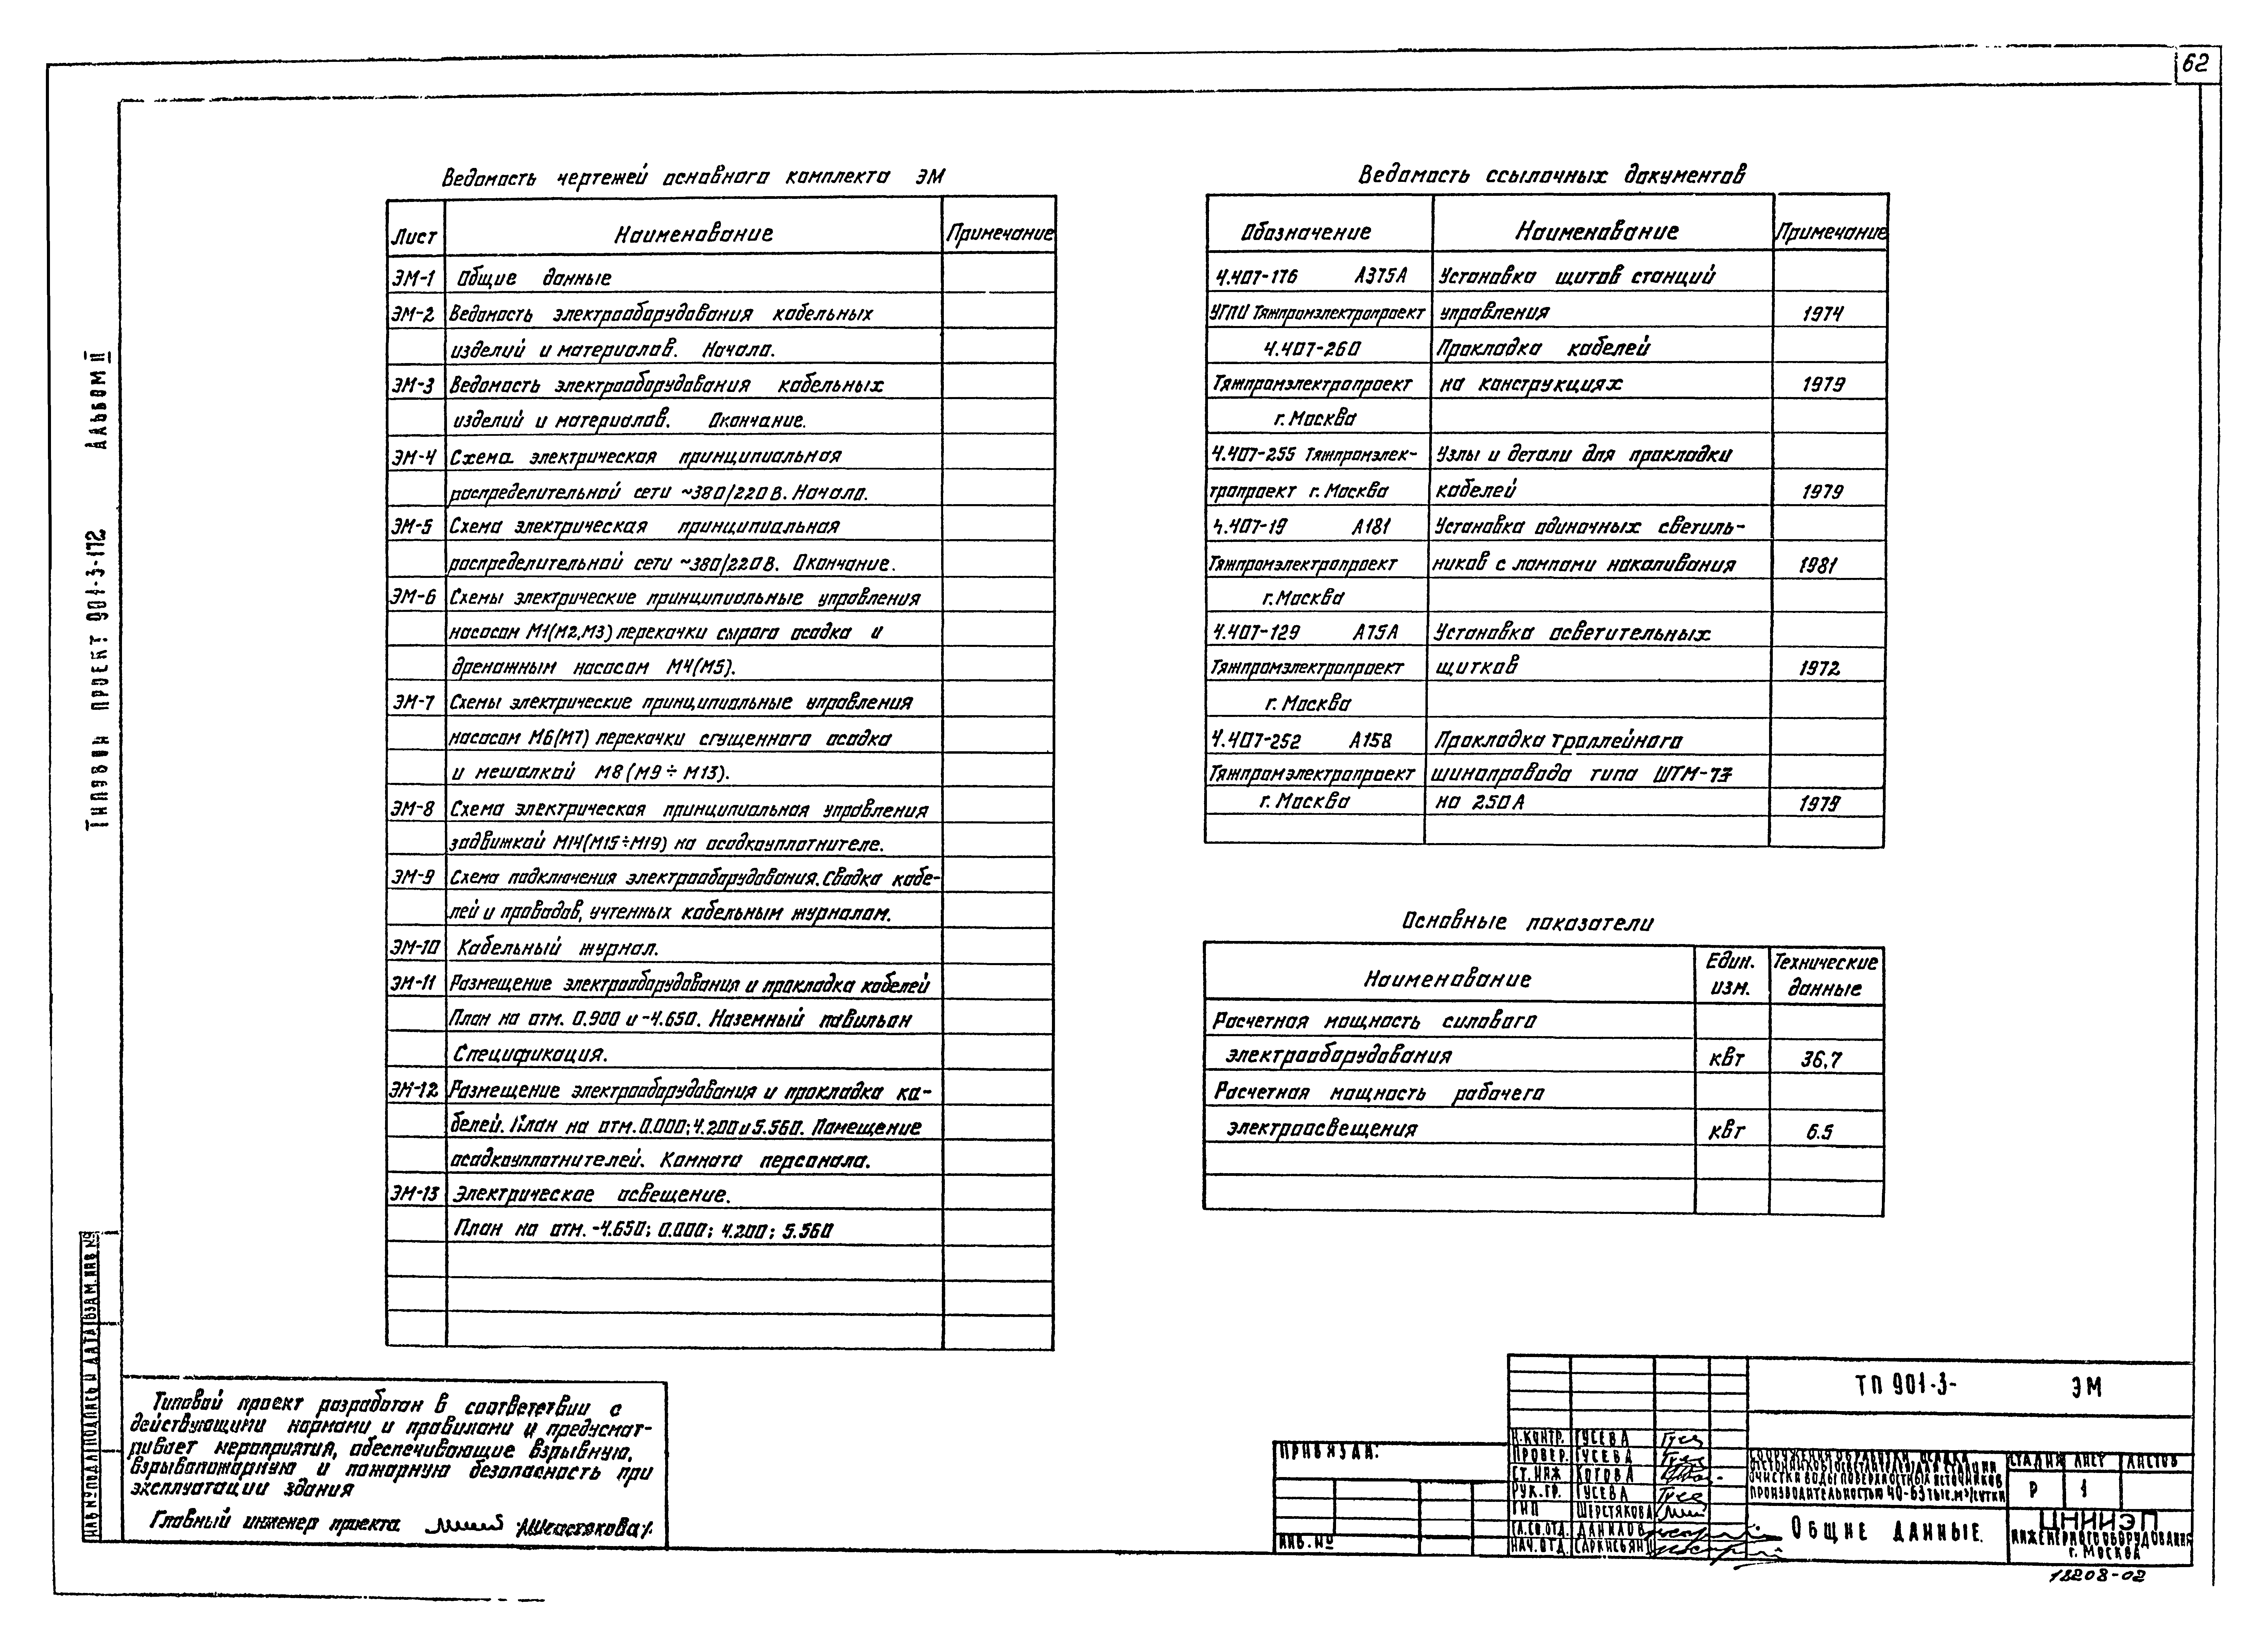 62
Ведомость чертежей основного комплекта ЭМ
Лист Наименование Примечание
ЭМ-1 Общие данные
ЭМ-2 Ведомость электрооборудования кабельных
изделий и материалов. Начало.
ЭМ-3 Ведомость электрооборудования кабельных
изделий и материалов. Окончание.
ЭМ-4 Схема электрическая принципиальная
распределительной сети ~380/220В. Начало.
ЭМ-5 Схема электрическая принципиальная
распределительной сети ~380/220В. Окончание.
ЭМ-6 Схемы электрические принципиальные управления
насосом М1(М2,М3) перекачки сырого осадка и
дренажным насосом М4(М5).
ЭМ-7 Схемы электрические принципиальные управления
насосом М6(М7) перекачки сгущенного осадка
и мешалкой М8(М9÷М13).
ЭМ-8 Схема электрическая принципиальная управления
задвижкой М14(М15÷М19) на осадкоуплотнителе.
ЭМ-9 Схема подключения электрооборудования. Сводка кабе-
лей и проводов, учтенных кабельным журналом.
ЭМ-10 Кабельный журнал.
ЭМ-11 Размещение электрооборудования и прокладка кабелей
План на отм. 0.900 и -4.650. Наземный павильон
Спецификация.
ЭМ-12 Размещение электрооборудования и прокладка ка-
белей. План на отм. 0.000; 4.200 и 5.560. Помещение
осадкоуплотнителей. Комната персонала.
ЭМ-13 Электрическое освещение.
План на отм. -4.650; 0.000; 4.200; 5.560
Ведомость ссылочных документов
Обозначение Наименование Примечание
4.407-176 А375А Установка щитов станций
УГПИ Тяжпромэлектропроект управления 1974
4.407-260 Прокладка кабелей
Тяжпромэлектропроект на конструкциях 1979
г. Москва
4.407-255 Тяжпромэлек- Узлы и детали для прокладки
тропроект г. Москва кабелей 1979
4.407-19 А181 Установка одиночных светиль-
Тяжпромэлектропроект ников с лампами накаливания 1981
г. Москва
4.407-129 А75А Установка осветительных
Тяжпромэлектропроект щитков 1972
г. Москва
4.407-252 А158 Прокладка троллейного
Тяжпромэлектропроект шинопровода типа ШТМ-73
г. Москва на 250А
Основные показатели
Наименование Един. изм. Технические данные
Расчетная мощность силового
электрооборудования квт 36,7
Расчетная мощность рабочего
электроосвещения квт 6.5
Типовой проект 901-3-172 Альбом II
Инв № подл Подпись и дата Взам. инв №
Типовой проект разработан в соответствии с
действующими нормами и правилами и предусмат-
ривает мероприятия, обеспечивающие взрывную,
взрывопожарную и пожарную безопасность при
эксплуатации здания
Главный инженер проекта /Шерстякова/
Привязан:
Инв. №
Н.контр. Гусева
Провер. Гусева
Ст. инж Котова
Рук. гр. Гусева
ГИП Шерстякова
Гл.сп.отд. Данилов
Нач. отд. Саркисьян
ТП 901-3- ЭМ
очистки воды поверхностных источников
производительностью 40-63 тыс. м³/сутки
Стадия Лист Листов
Р 1
Общие данные.
ЦНИИЭП
инженерного оборудования
г. Москва
18208-02